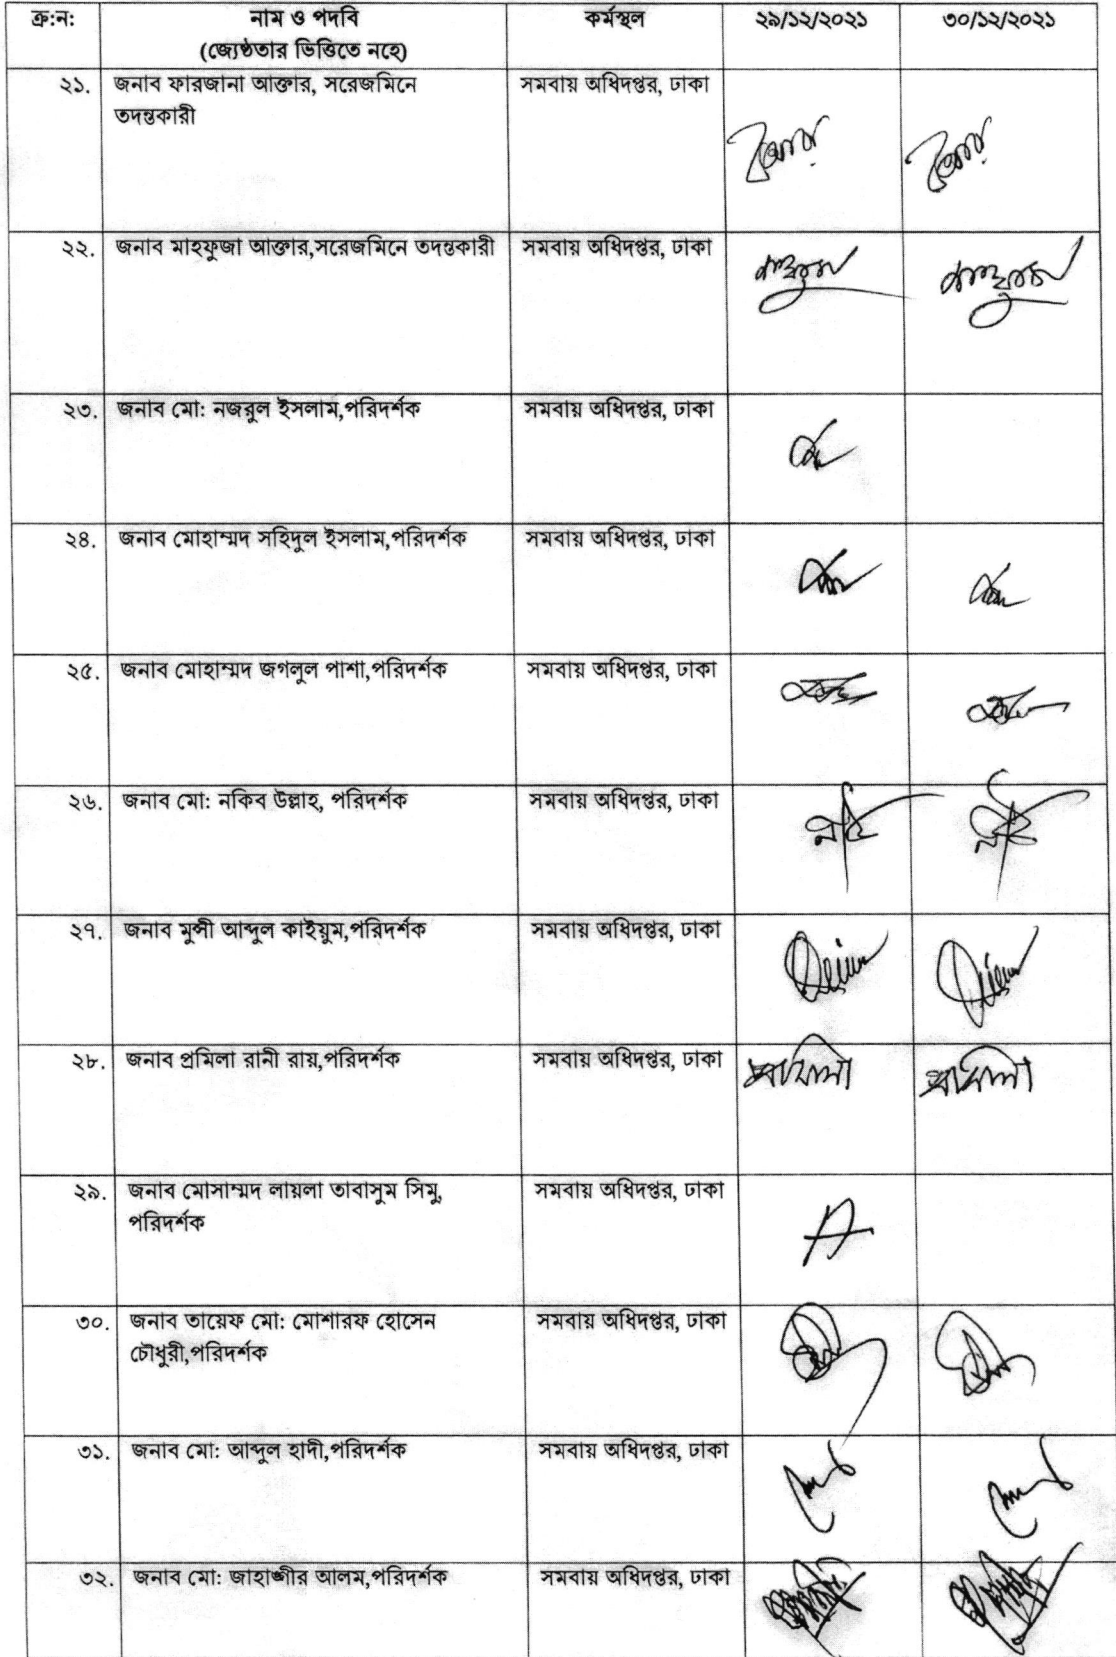 ক্র:ন: নাম ও পদবি কর্মস্থল ২৯/১২/২০২১ ৩০/১২/২০২১
(জ্যেষ্ঠতার ভিত্তিতে নহে)
২১. জনাব ফারজানা আক্তার, সরেজমিনে সমবায় অধিদপ্তর, ঢাকা
তদন্তকারী
২২. জনাব মাহফুজা আক্তার,সরেজমিনে তদন্তকারী সমবায় অধিদপ্তর, ঢাকা
২৩. জনাব মো: নজরুল ইসলাম,পরিদর্শক সমবায় অধিদপ্তর, ঢাকা
২৪. জনাব মোহাম্মদ সহিদুল ইসলাম,পরিদর্শক সমবায় অধিদপ্তর, ঢাকা
২৫. জনাব মোহাম্মদ জগলুল পাশা,পরিদর্শক সমবায় অধিদপ্তর, ঢাকা
২৬. জনাব মো: নকিব উল্লাহ, পরিদর্শক সমবায় অধিদপ্তর, ঢাকা
২৭. জনাব মুন্সী আব্দুল কাইয়ুম,পরিদর্শক সমবায় অধিদপ্তর, ঢাকা
২৮. জনাব প্রমিলা রানী রায়,পরিদর্শক সমবায় অধিদপ্তর, ঢাকা প্রমিলা প্রমিলা
২৯. জনাব মোসাম্মদ লায়লা তাবাসুম সিমু, সমবায় অধিদপ্তর, ঢাকা
পরিদর্শক
৩০. জনাব তায়েফ মো: মোশারফ হোসেন সমবায় অধিদপ্তর, ঢাকা
চৌধুরী,পরিদর্শক
৩১. জনাব মো: আব্দুল হাদী,পরিদর্শক সমবায় অধিদপ্তর, ঢাকা
৩২. জনাব মো: জাহাঙ্গীর আলম,পরিদর্শক সমবায় অধিদপ্তর, ঢাকা